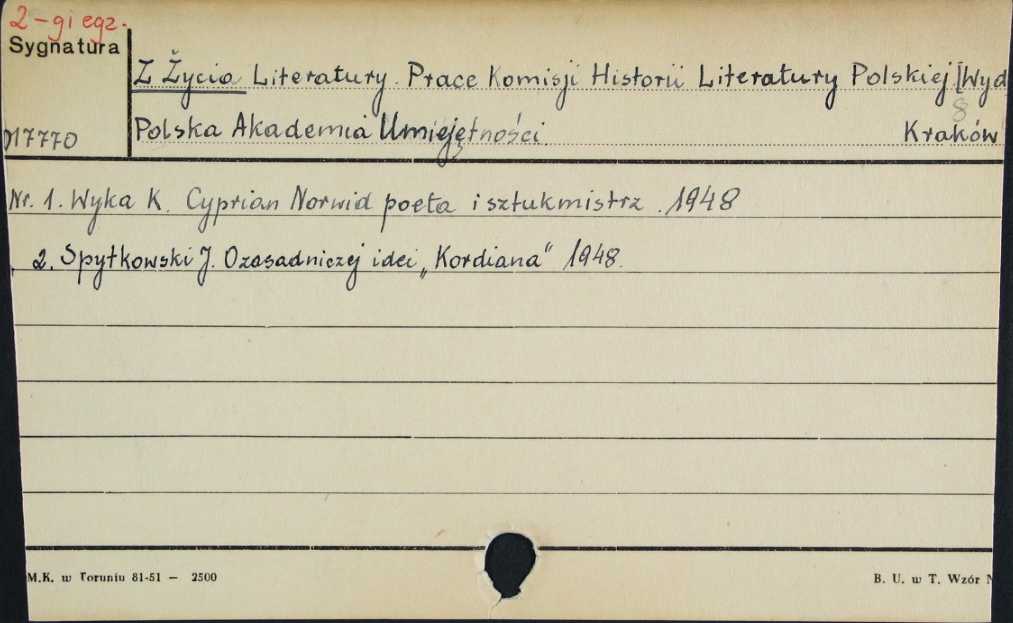 2-gi egz.
Sygnatura
Z Życia Literatury. Prace Komisji Historii Literatury Polskiej [Wyd
8
017770 Polska Akademia Umiejętności. Kraków
Nr. 1. Wyka K. Cyprian Norwid poeta i sztukmistrz. 1948
" 2. Spytkowski J. O zasadniczej idei „Kordiana" 1948.
M.K. w Toruniu 81-51 — 2500 B. U. w T. Wzór N